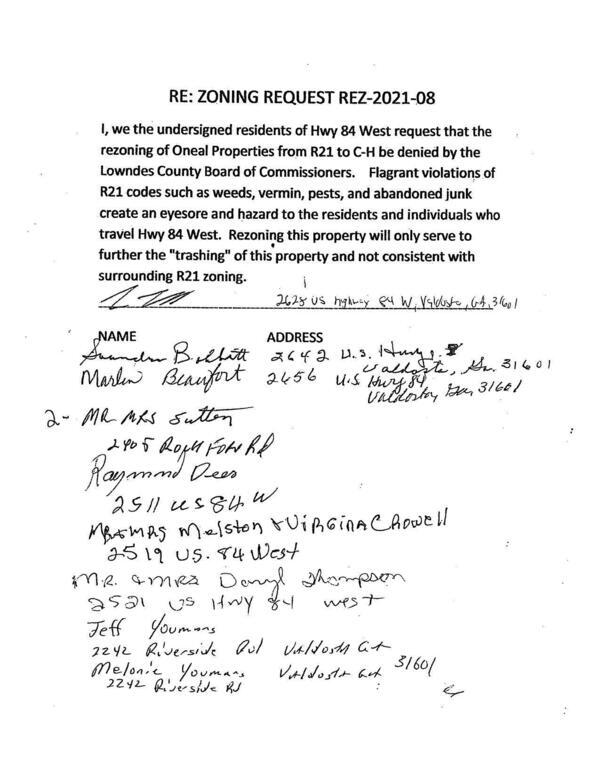 RE: ZONING REQUEST REZ-2021-08
I, we the undersigned residents of Hwy 84 West request that the
rezoning of Oneal Properties from R21 to C-H be denied by the
Lowndes County Board of Commissioners. Flagrant violations of
R21 codes such as weeds, vermin, pests, and abandoned junk
create an eyesore and hazard to the residents and individuals who
travel Hwy 84 West. Rezoning this property will only serve to
further the "trashing" of this property and not consistent with
surrounding R21 zoning.
2628 US highway 84 W, Valdosta, GA, 31601
NAME ADDRESS
2642 U.S. Hwy.
Valdosta, Ga. 31601
Marlen Beaufort 2656 U.S Hwy 84
Valdosta, Ga, 31601
2- MR MRS Sutton
2905 Rocky Ford Rd
Raymond Dees
2511 US 84 W
MR & MRS Melston & VIRGINA CROWELL
2519 US. 84 West
MR. & MRS Daryl Thompson
2521 US HWY 84 west
Jeff Youmans
2242 Riverside Rd Valdosta GA
Melonie Youmans Valdosta GA 31601
2242 Riverside Rd